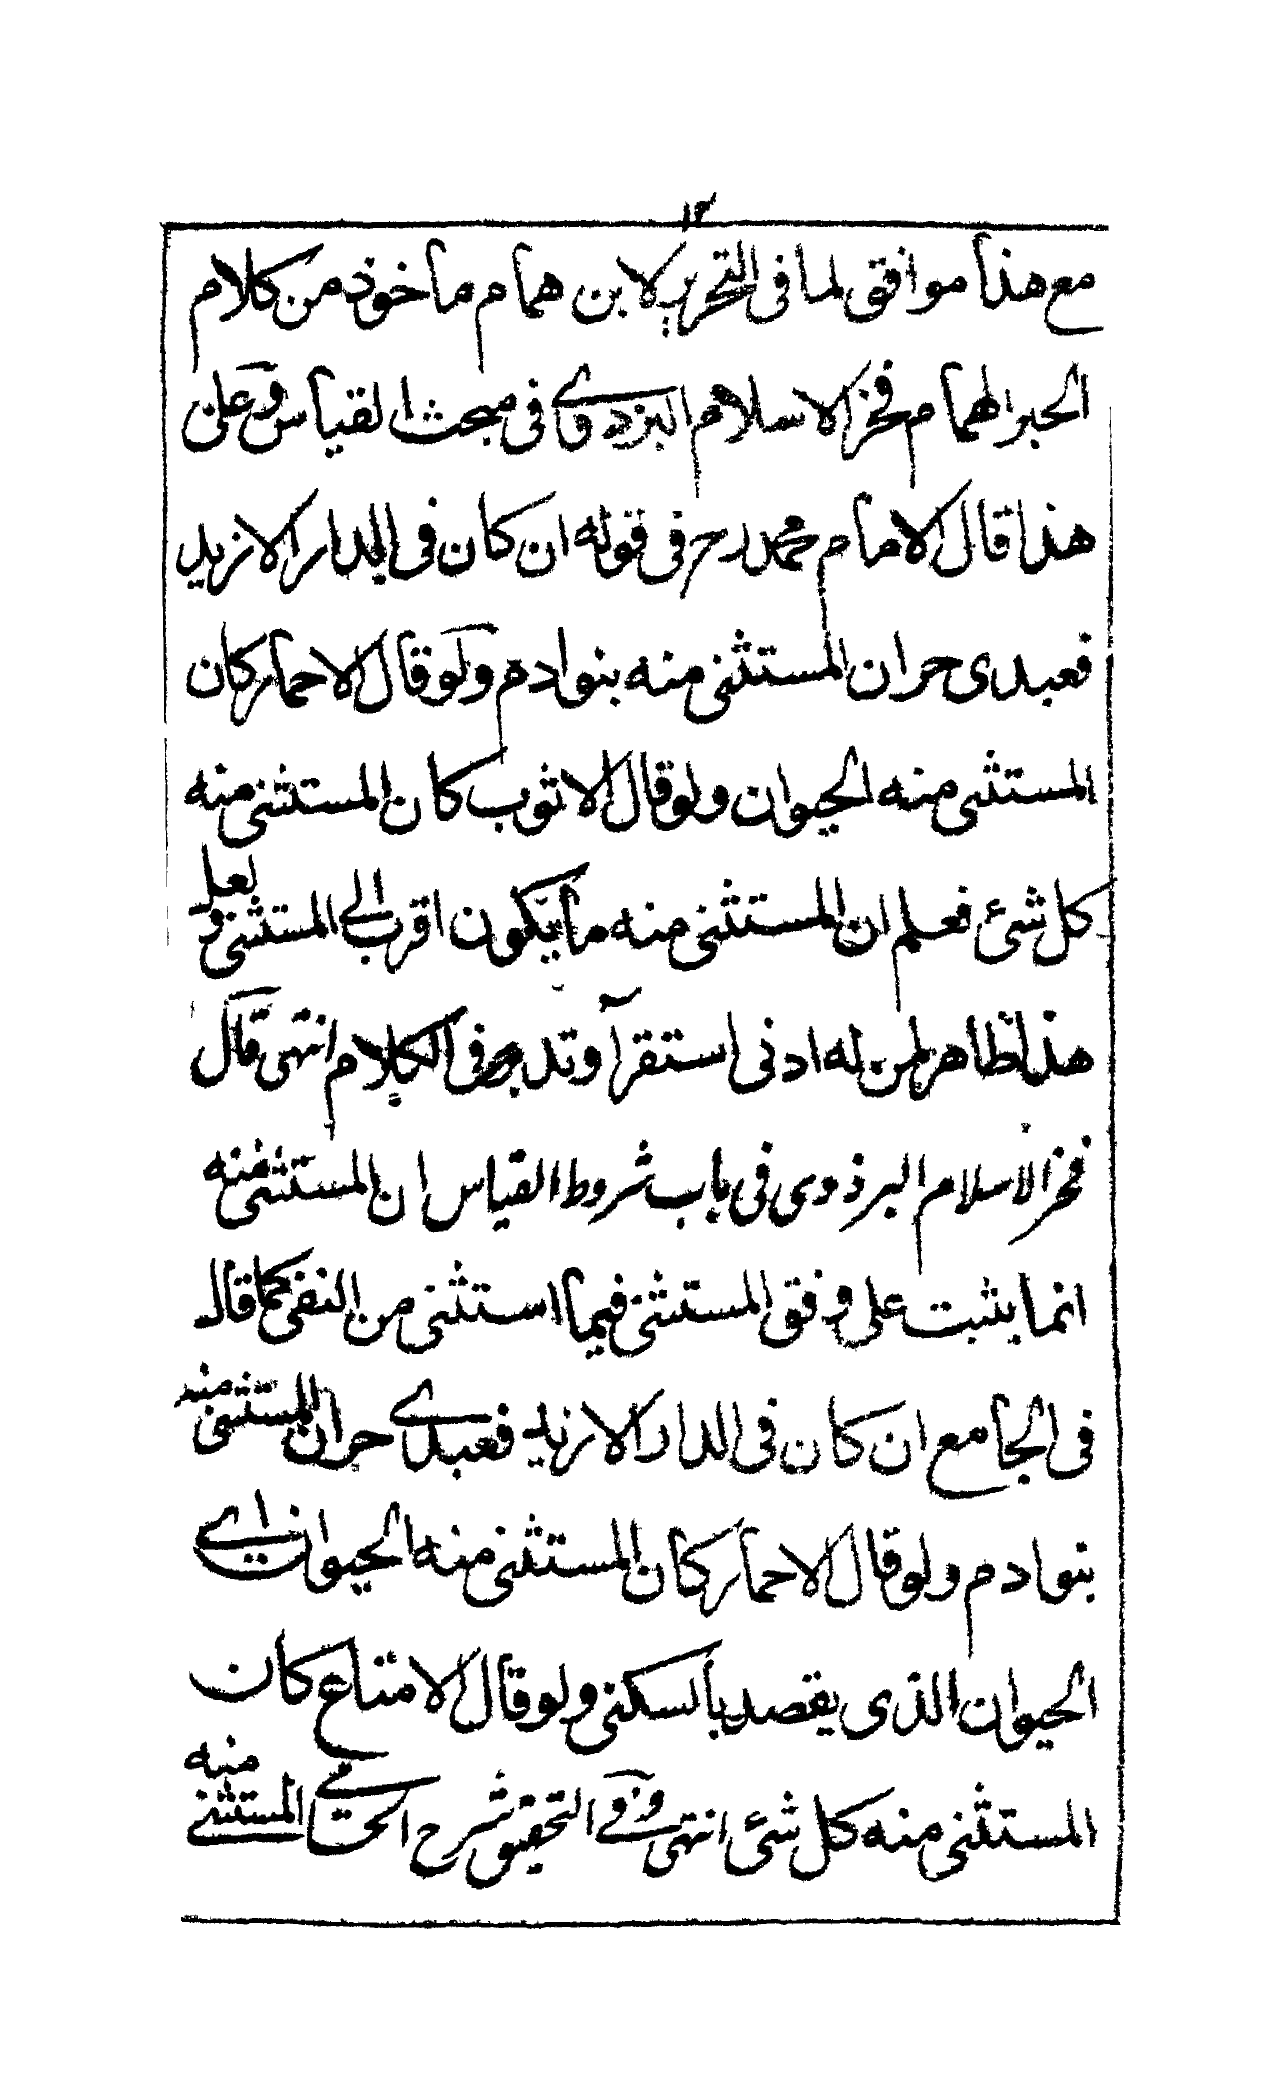 ١٢
مع هذا موافق لما فى التحرير لابن همام ماخوذ من كلام
الحبر الهمام فخر الاسلام البزدوى فى مبحث القياس وعلى
هذا قال الامام محمد رح فى قوله ان كان فى الدار الا زيد
فعبدى حر ان المستثنى منه بنوادم ولو قال الا حمار كان
المستثنى منه الحيوان ولو قال الا ثوب كان المستثنى منه
كل شئ فعلم ان المستثنى منه ما يكون اقرب الى المستثنى و لعل
هذا ظاهر لمن له ادنى استقرآ وتدبر فى الكلام انتهى قال
فخر الاسلام البرذوى فى باب شروط القياس ان المستثنى منه
انما يثبت على وفق المستثنى فيما استثنى من النفى كما قال
فى الجامع ان كان فى الدار الا زيد فعبدى حر ان المستثنى منه
بنوادم ولو قال الا حمار كان المستثنى منه الحيوان اى
الحيوان الذى يقصد بالسكنى ولو قال الا متاع كان
المستثنى منه كل شئ انتهى وفى التحقيق شرح الحسامى المستثنى منه